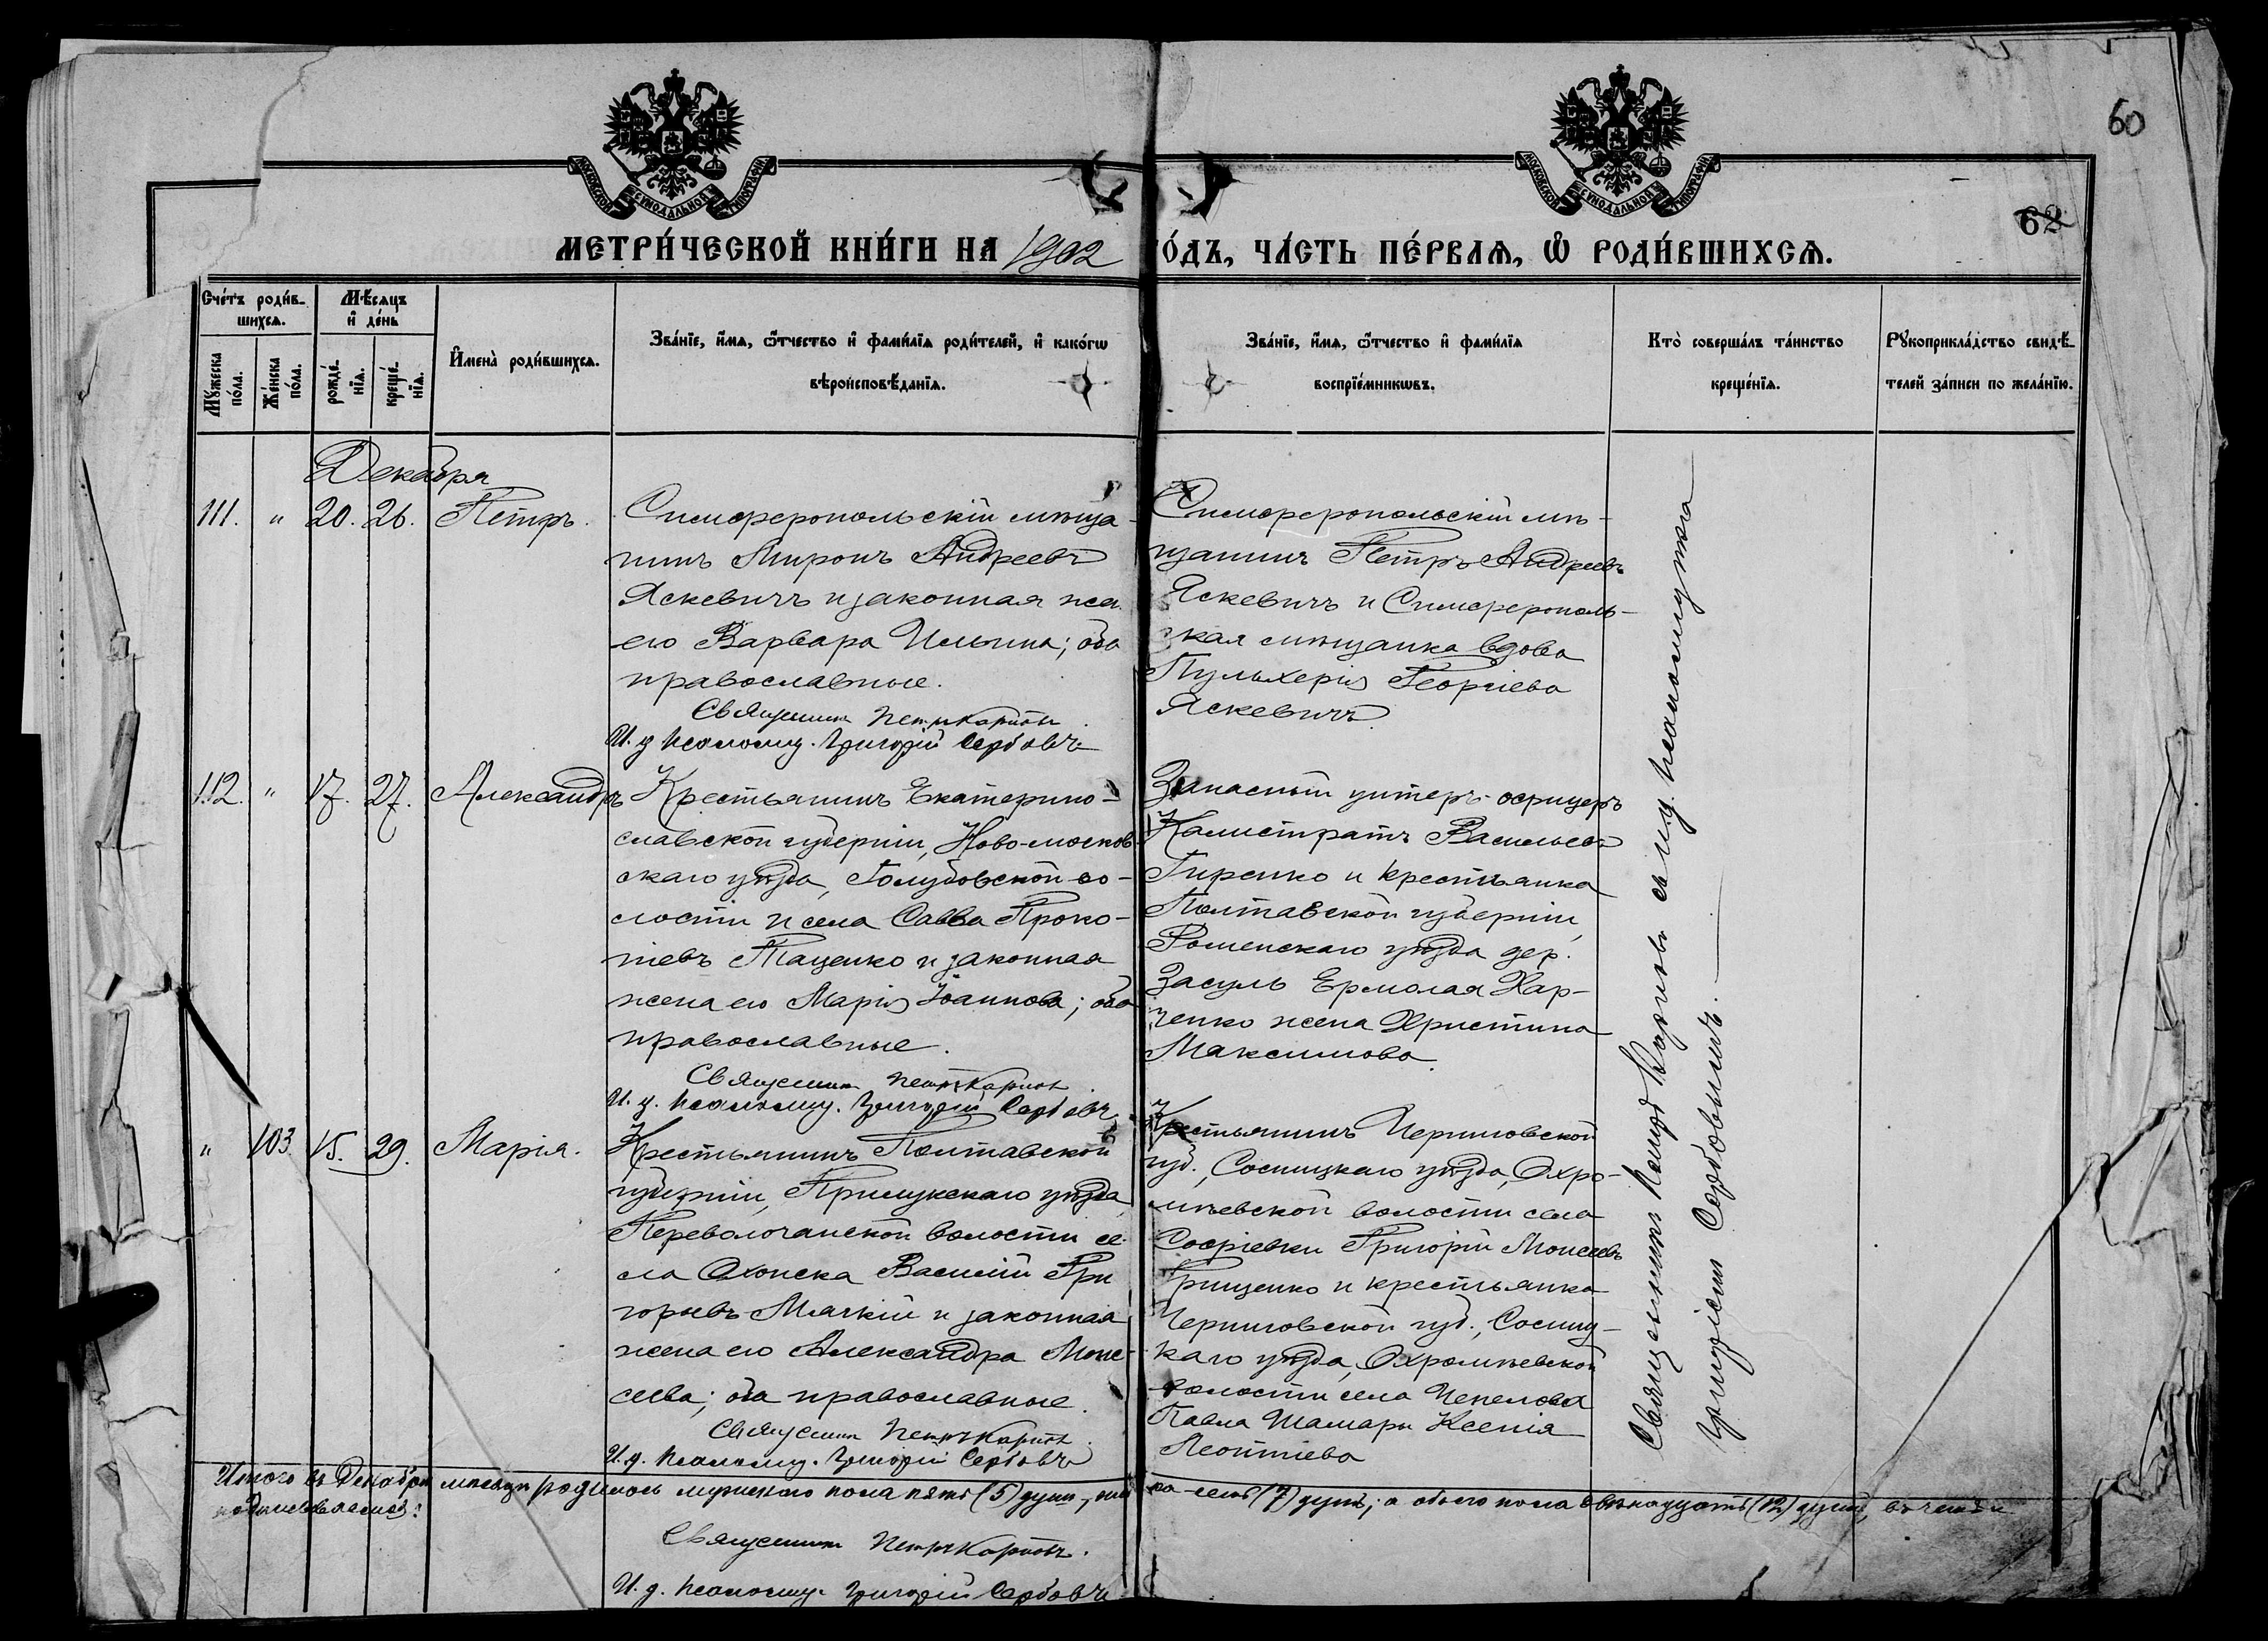 60
62
МОСКОВСКОЙ СѴНОДАЛЬНОЙ ТИПОГРАФІИ
МОСКОВСКОЙ СѴНОДАЛЬНОЙ ТИПОГРАФІИ
МЕТРИ́ЧЕСКОЙ КНИ́ГИ НА 1902 ГО́ДЪ, ЧА́СТЬ ПЕ́РВАѦ, Ѽ РОДИ́ВШИХСѦ.
Сче́тъ роди́в-
шихсѧ.
Мѣ́сѧцъ
и҆ де́нь
Мꙋ́жеска
по́ла.
Же́нска
по́ла.
рожде́-
нїѧ.
креще́-
нїѧ.
И҆мена̀ роди́вшихсѧ.
Зва́нїе, и҆́мѧ, ѻ҆́тчество и҆ фами́лїѧ роди́телей, и҆ како́гѡ
вѣроисповѣ́данїѧ.
Зва́нїе, и҆́мѧ, ѻ҆́тчество и҆ фами́лїѧ
воспрїе́мникѡвъ.
Кто̀ соверша́лъ та́инство
креще́нїѧ.
Рꙋкоприкла́дство свидѣ́-
телей за́писи по жела́нїю.
Декабря
111. " 20. 26. Петръ.
Симферопольскій мѣща-
нинъ Миронъ Андреевъ
Яскевичъ и законная жен.
его Варвара Ильина; оба
православные.
Священникъ Петръ Карповъ
И. д. псаломщ. Григорій Сербовъ
Симферопольскій мѣ-
щанинъ Петръ Андреевъ
Яскевичъ и Симферополь-
ская мѣщанка вдова
Пульхерія Георгіева
Яскевичъ
112. " 17. 27. Александръ
Крестьянинъ Екатерино-
славской губерніи, Ново-москов-
скаго уѣзда, Голубовской во-
лости и села Савва Проко-
піевъ Таценко и законная
жена его Марія Іоаннова; оба
православные.
Священникъ Петръ Карповъ
И. д. псаломщ. Григорій Сербовъ
Запасный унтеръ-офицеръ
Калистратъ Васильевъ
Гиренко и крестьянка
Полтавской губерніи,
Роменскаго уѣзда дер.
Засуль Ермолая Хар-
ченко жена Христина
Максимова.
" 103 15. 29. Марія.
Крестьянинъ Полтавской
губерніи, Прилукскаго уѣзда,
Переволочанской волости се-
ла Охонска Василій Гри
горьевъ Мягкій и законная
жена его Александра Мои-
сеева; оба православные.
Священникъ Петръ Карповъ
И. д. псаломщ. Григорій Сербовъ
Крестьянинъ Черниговской
губ., Сосницкаго уѣзда, Охра-
міевской волости села
Софіевки Григорій Моисеевъ
Грищенко и крестьянка
Черниговской губ., Сосниц-
каго уѣзда, Охраміевской
волости села Чепелова
Павла Шамары Ксенія
Леонтіева
Священникъ Петръ Карповъ съ и. д. псаломщика
Григоріемъ Сербовымъ.
Итого въ Декабрѣ мѣсяцѣ родилось мужескаго пола пять (5) душъ, женска-семь (7) душъ; а обоего пола двѣнадцать (12) душъ, въ чемъ и
подписываемся:
Священникъ Петръ Карповъ.
И. д. псаломщ. Григорій Сербовъ